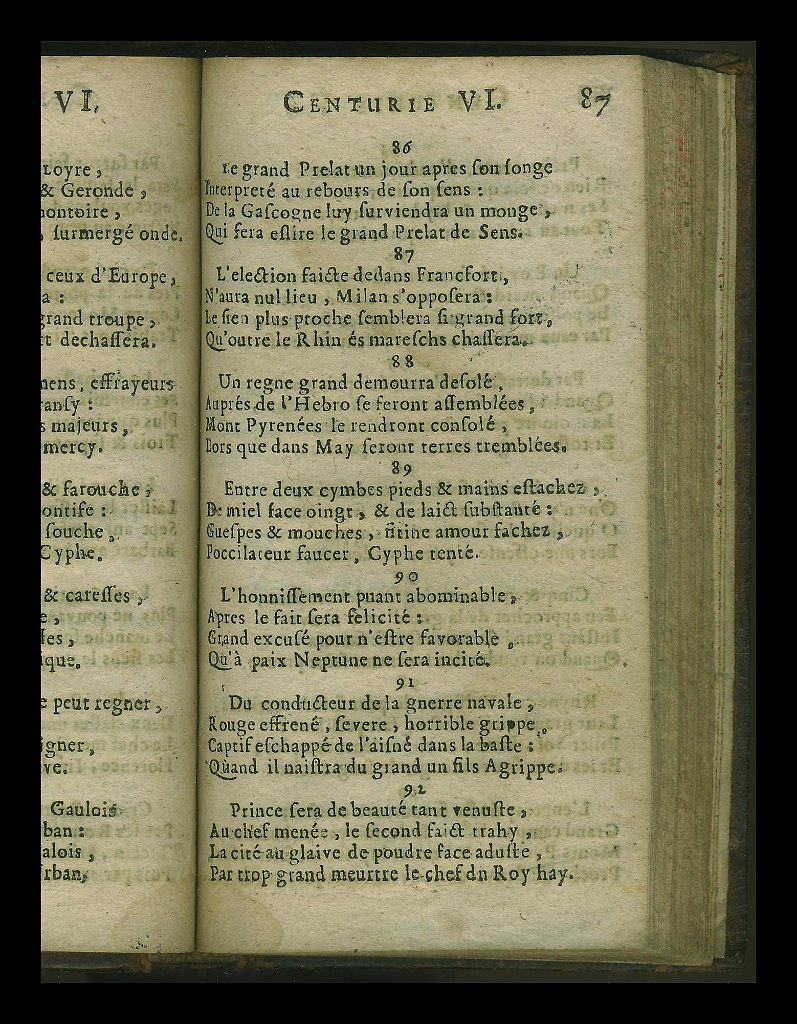 VI,
Loyre,
& Geronde,
montoire,
, ſurmergé onde.
ceux d'Europe,
a :
grand troupe,
dechaſſera.
mens, effrayeurs
anſy :
majeurs,
mercy.
& farouche ;
ontife :
ſouche,
Cyphe.
& careſſes,
e,
ſes,
ique.
e peut regner,
igner,
ve.
Gaulois
ban :
alois,
rban,
CENTURIE VI. 87
86
Le grand Prelat un jour apres ſon ſonge
Interpreté au rebours de ſon ſens :
De la Gaſcogne luy ſurviendra un monge,
Qui ſera eſlire le grand Prelat de Sens.
87
L'election faicte dedans Francfort,
N'aura nul lieu, Milan s'oppoſera :
Le ſien plus proche ſemblera ſi grand fort,
Qu'outre le Rhin és mareſchs chaſſera.
88
Un regne grand demourra deſolé,
Auprés de l'Hebro ſe feront aſſemblées,
Mont Pyrenées le rendront conſolé,
Lors que dans May ſeront terres tremblées.
89
Entre deux cymbes pieds & mains eſtachez,
De miel face oingt, & de laict ſubſtanté :
Gueſpes & mouches, fitine amour fachez,
Poccilateur faucer, Cyphe tenté.
90
L'honniſſement puant abominable,
Apres le fait ſera felicité :
Grand excuſé pour n'eſtre favorable,
Qu'à paix Neptune ne ſera incité.
91
Du conducteur de la gnerre navale,
Rouge effrené, ſevere, horrible grippe,
Captif eſchappé de l'aiſné dans la baſte :
Quand il naiſtra du grand un fils Agrippe.
92
Prince ſera de beauté tant venuſte,
Au chef menée, le ſecond faict trahy,
La cité au glaive de poudre face aduſte,
Par trop grand meurtre le chef dn Roy hay.